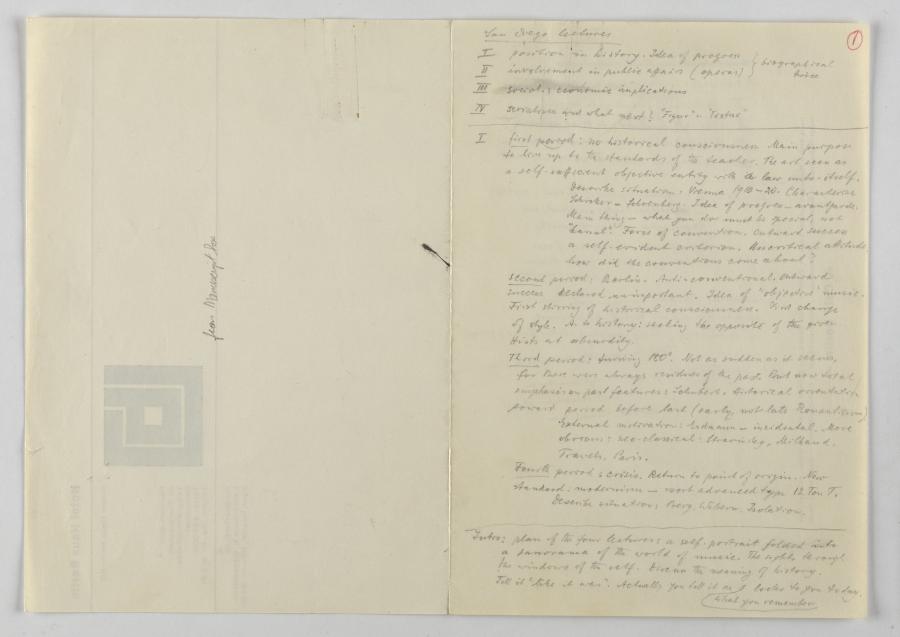 from Manuscript Box
San Diego lectures
1
I position in history. Idea of progress
II involvement in public affairs (operas) } biographical
III social & economic implications
IV serialism and what next?
I First period: no historical consciousness. Main purpose
to live up to the standards of the teacher. The art seen as
a self-sufficient objective entity with a law unto itself.
Describe situation: Vienna 1918-20. Characterize
Schreker – Schoenberg. Idea of progress – avantgarde.
Main thing – what you do must be special, not
"banal". Force of convention. Outward success
a self-evident criterion. Uncritical attitude
how did the conventions come about?
Second period: Berlin. Anti-conventional. Outward
success declared unimportant. Idea of "objective" music.
First stirring of historical consciousness. First change
of style. As to history: seeking the opposite of the given
Hints at absurdity.
Third period: turning 180°. Not as sudden as it seems,
for there were always residues of the past. But now total
emphasis on past features: Schubert. Historical orientation
toward period before last (early, not late Romanticism)
External motivation: Erdmann – incidental. More
obvious: neo-classical: Stravinsky, Milhaud.
Travels. Paris.
Fourth period: crisis. Return to point of origin. New
standard: modernism – most advanced type 12 Ton T.
Describe situation: Berg, Webern. Isolation.
Intro: plan of the four lectures: a self-portrait folded into
a panorama of the world of music. The sights through
the windows of the self. Discuss the meaning of history.
Tell it "like it was". Actually you tell it as it looks to you today.
what you remember